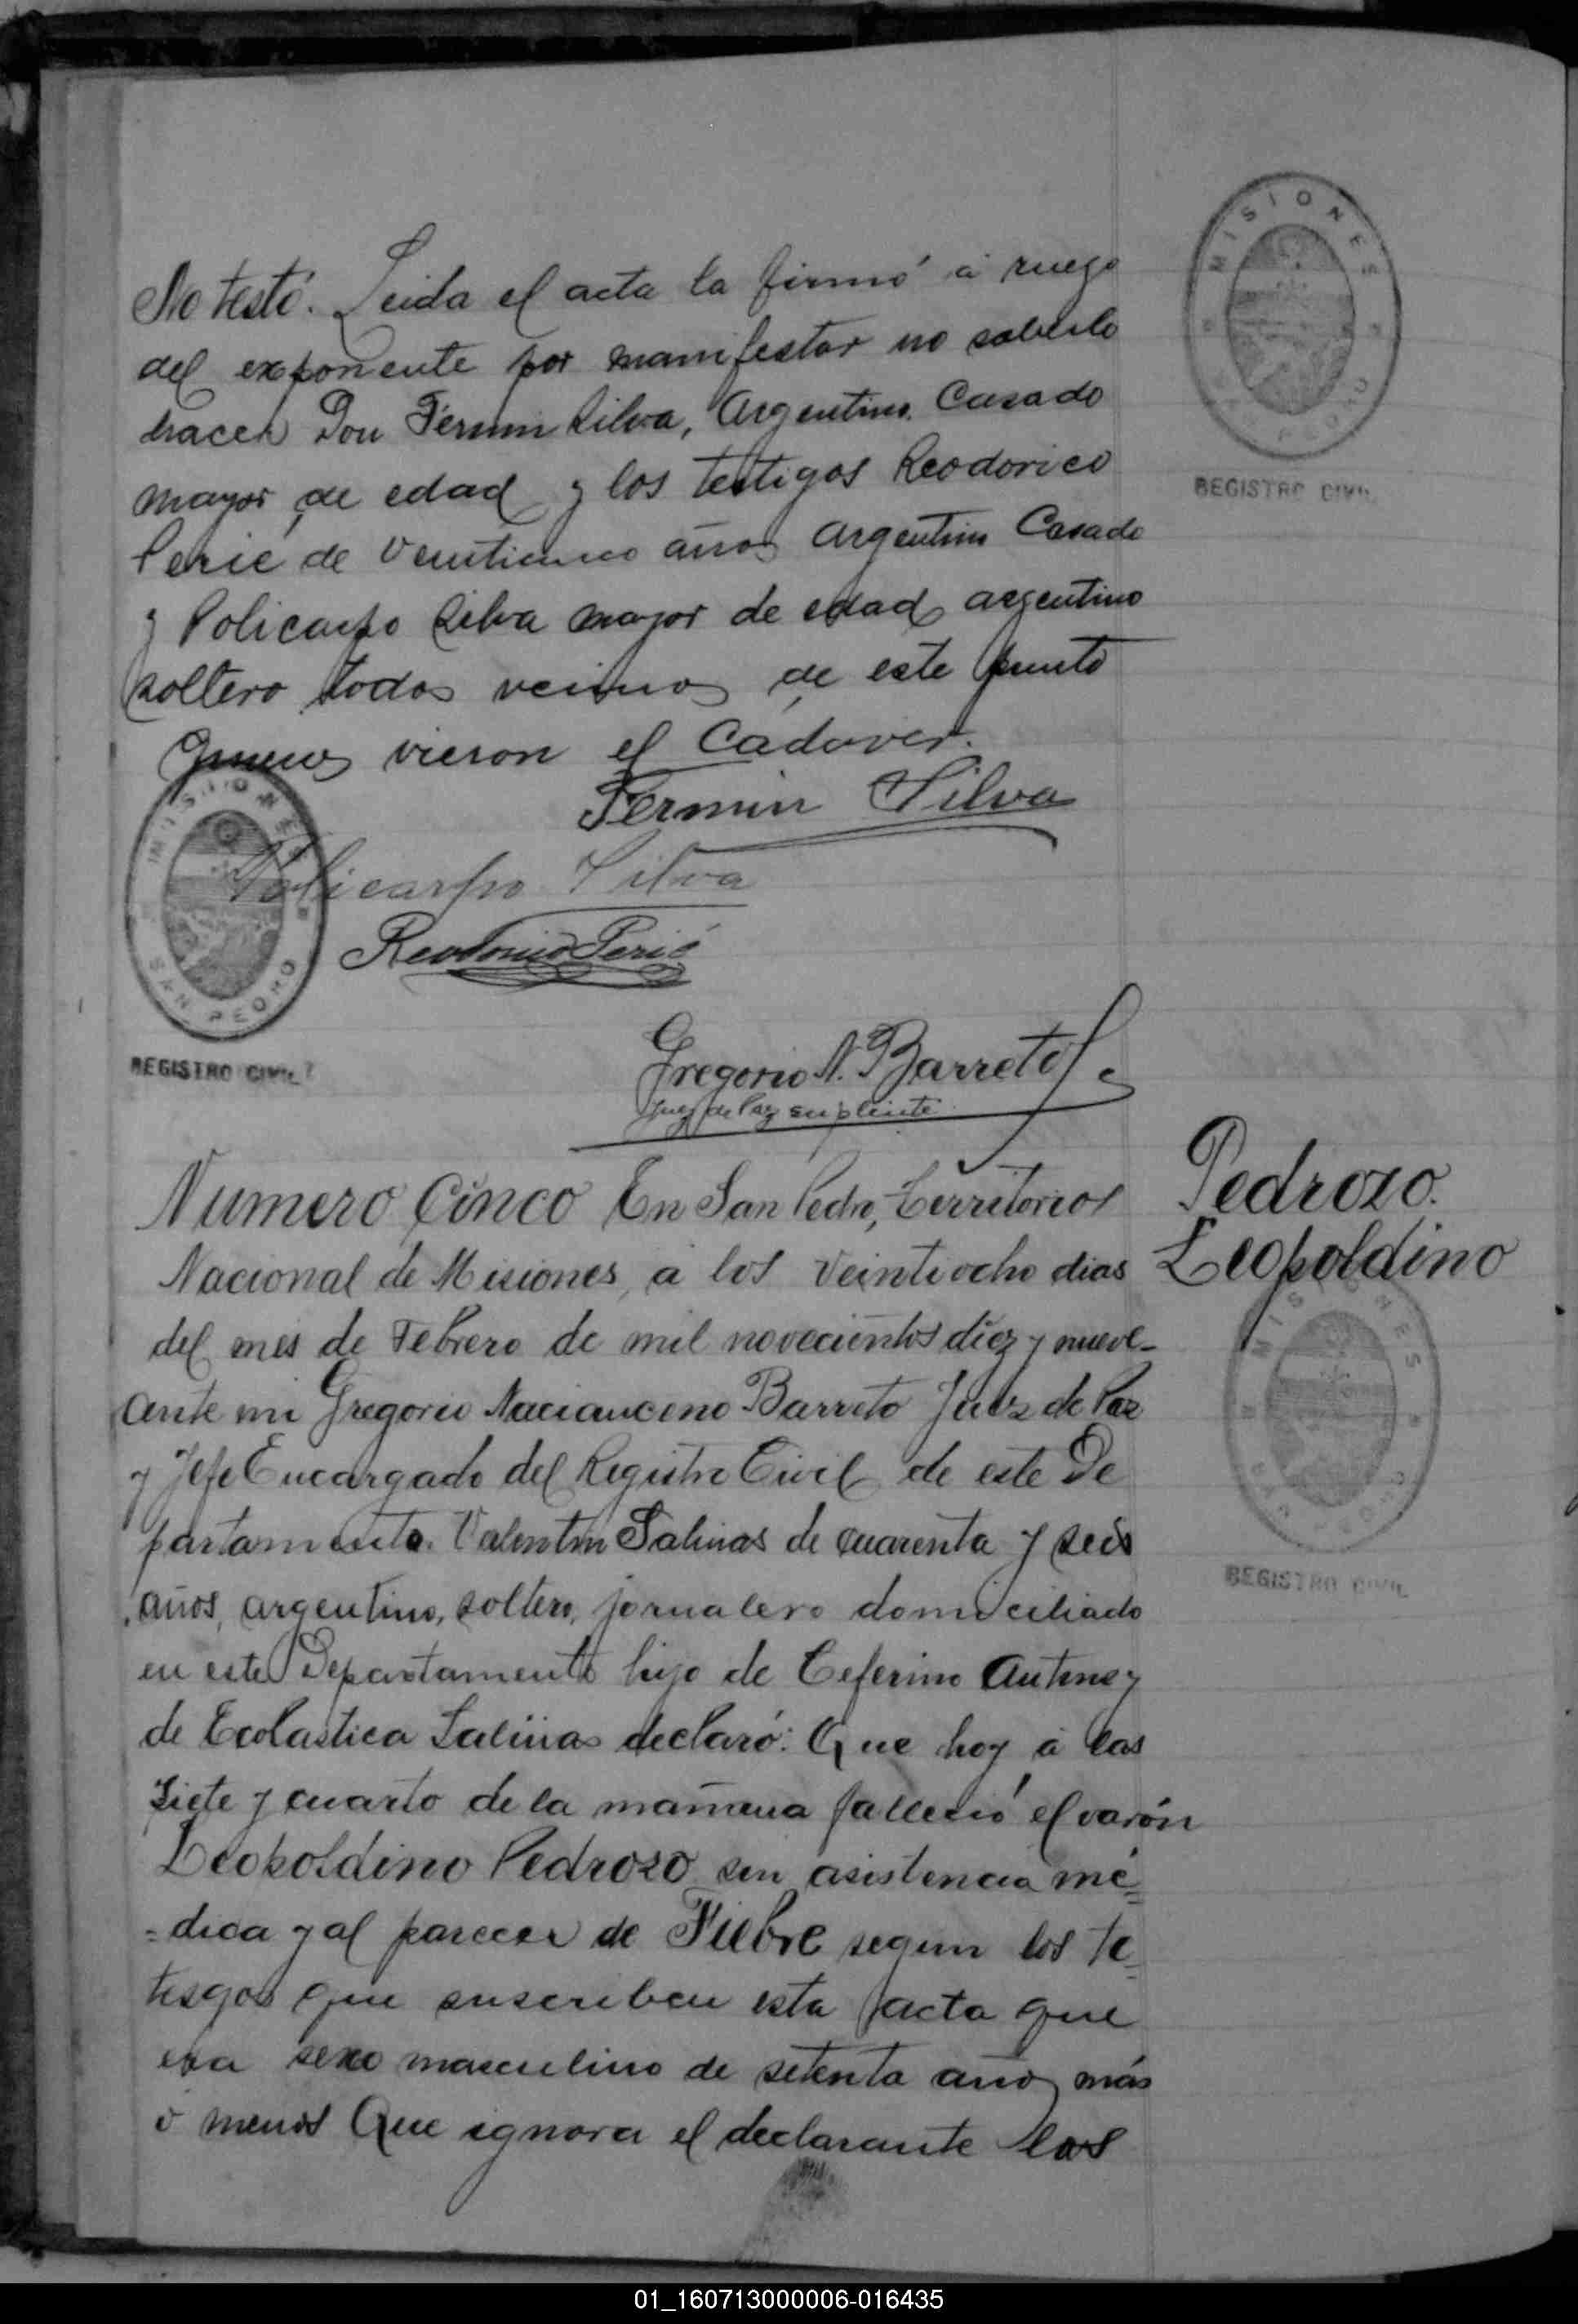 No testó. Leida el acta la firmó á ruego
del exponente por manifestar no saberlo
hacer Don Fermin Silva, Argentino. Casado
mayor de edad y los testigos Reodorico
Perié de Veinticinco años argentino Casado
y Policarpo Silva mayor de edad argentino
soltero todos vecinos de este punto
quienes vieron el Cadaver.
Fermin Silva
Policarpo Silva
Perié
Gregorio N. Barreto
Juez de Paz suplente
MISIONES
SAN PEDRO
REGISTRO CIVIL
Numero Cinco En San Pedro, Territorio
Nacional de Misiones, a los Veintiocho dias
del mes de Febrero de mil novecientos diez y nueve-
ante mi Gregorio Nacianceno Barreto Juez de Paz
y Jefe Encargado del Registro Civil de este De
partamento. Valentin Salinas de cuarenta y seis
años, argentino, soltero, jornalero domiciliado
en este Departamento hijo de Ceferino y
de Ecolastica Salinas declaró: Que hoy á las
siete y cuarto de la mañana falleció el varón
Leopoldino Pedrozo sin asistencia mé=
=dica y al parecer de Fiebre segun los te=
tisgos que suscriben esta acta que
era sexo masculino de setenta años más
ó menos Que ignora el declarante los
MISIONES
SAN PEDRO
REGISTRO CIVIL
Pedrozo.
Leopoldino
MISIONES
SAN PEDRO
REGISTRO CIVIL
01_160713000006-016435